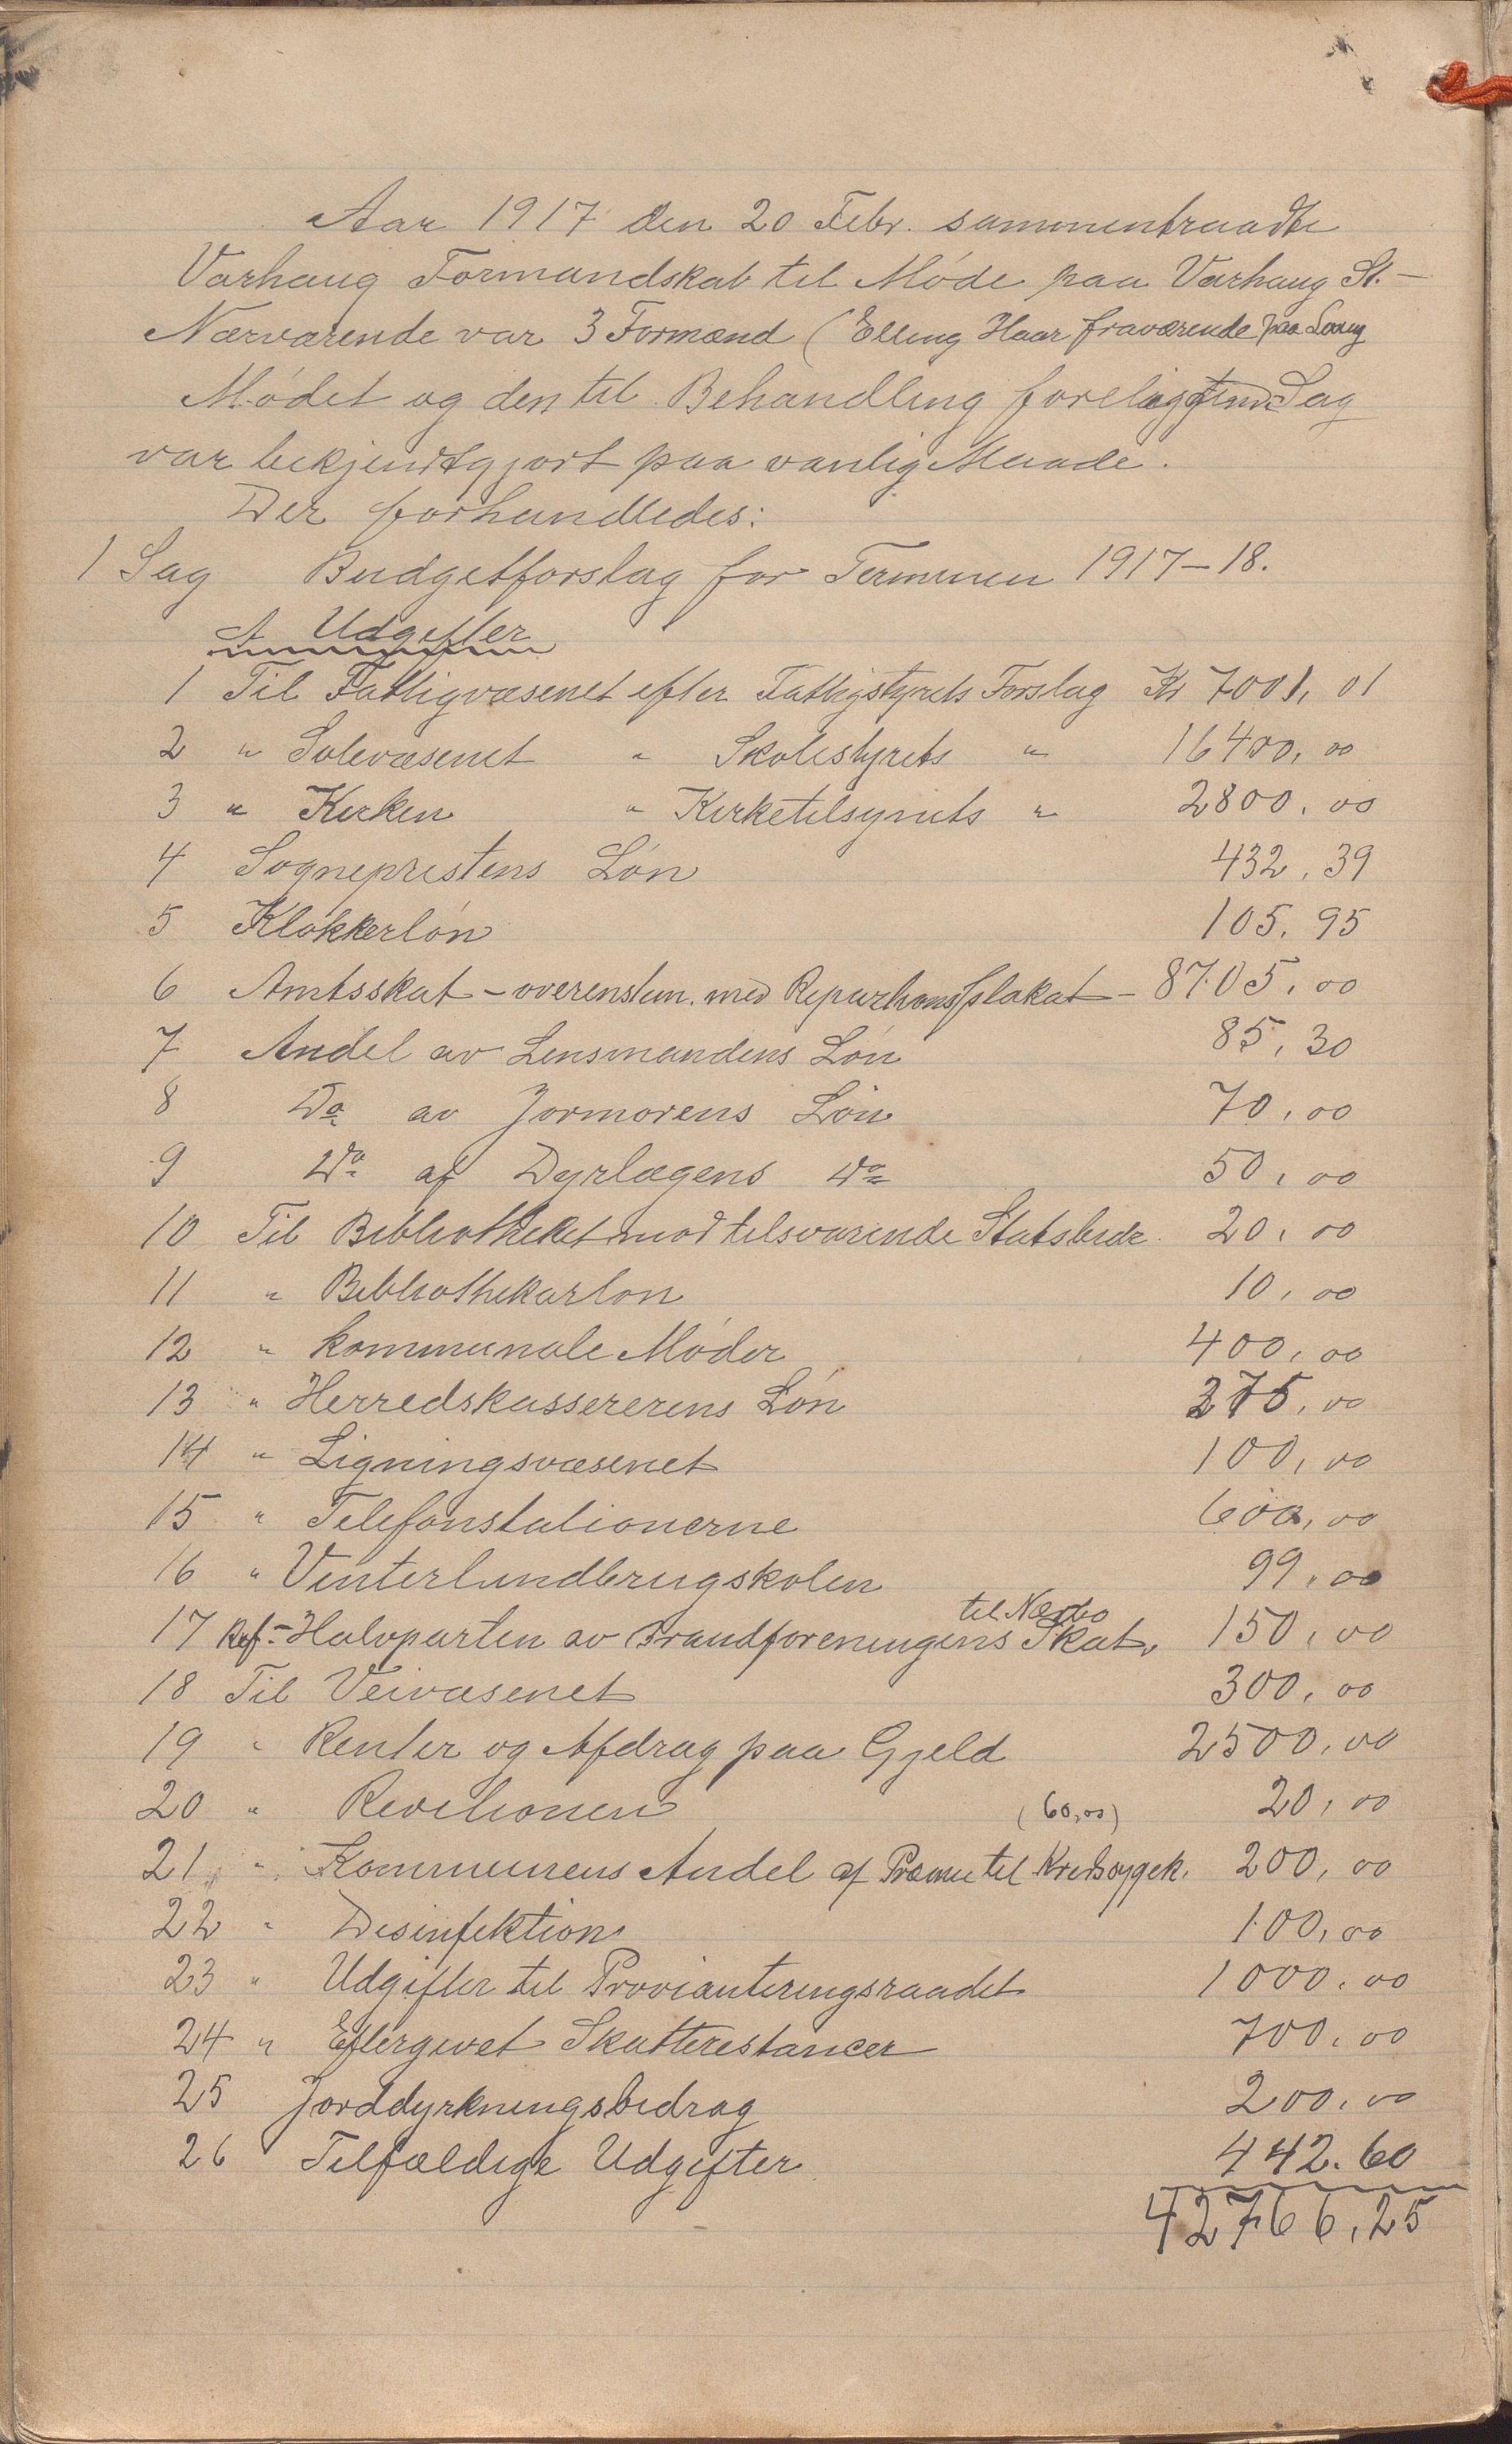 Aar 1917 den 20 Febr. sammentraadte
Varhaug Formandskab til Møde paa Varhaug St. -
Nærværende var 3 Formænd ( Elling Haar fraværende paa
Mødet og den til Behandling Sag
var bekjendtgjort paa vanlig Maade.
Der forhandledes:
1 Sag Budgetforslag for Terminen 1917-18.
A Udgifter
1 Til Fattigvæsenet efter Fattigstyrets Forslag Kr 7001,01
2 " Solevæsenet " Skolestyrets " 16400,00
3 " Kirken " Kirketilsynets " 2800,00
4 Sogneprestens Løn 432,39
5 Klokkerløn 105,95
6 Amtsskat - overenstem. med Repartionsplakat - 8705,00
7 Andel av Lensmandens Løn 85,30
8 Do av Jormorens Løn 70,00
9 Do af Dyrlægens Do 50,00
10 Til Bibliotheket mod tilsvarende Statsbidr. 20,00
11 " Bibliothekarløn 10,00
12 " kommunale Møder 400,00
13 " Herredskassererens Løn 375,00
14 " Ligningsvæsenet 100,00
15 " Telefonstationerne 600,00
16 " Vinterlandbrugskolen 99,00
17 Ref - Halvparten av Brandforeningens Skat til Nærbo 150,00
18 Til Veivæsenet 300,00
19 " Renter og Afdrag paa Gjeld 2500,00
20 " Revitionen (60,00) 20,00
21 " Kommunens Andel af Præmie til Kredssygek. 200,00
22 " Desinfektion 100,00
23 " Udgifter til Provianteringsraadet 1000,00
24 " Eftergivet Skatterestancer 700,00
25 Jorddyrkningsbidrag 200,00
26 Tilfældige Udgifter 442.60
42766,25